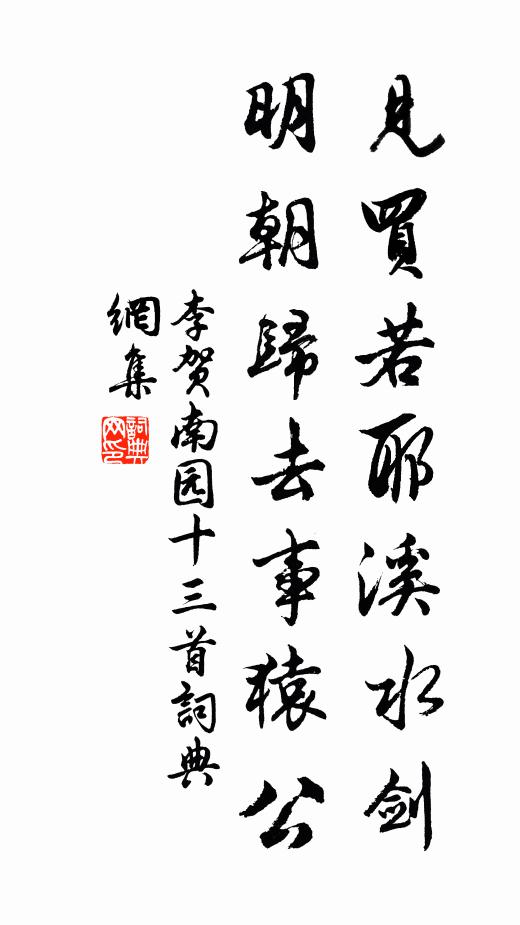 見買若耶溪水劍
明朝歸去事猿公
李贺南园十三首詞典
網集
詞典網印